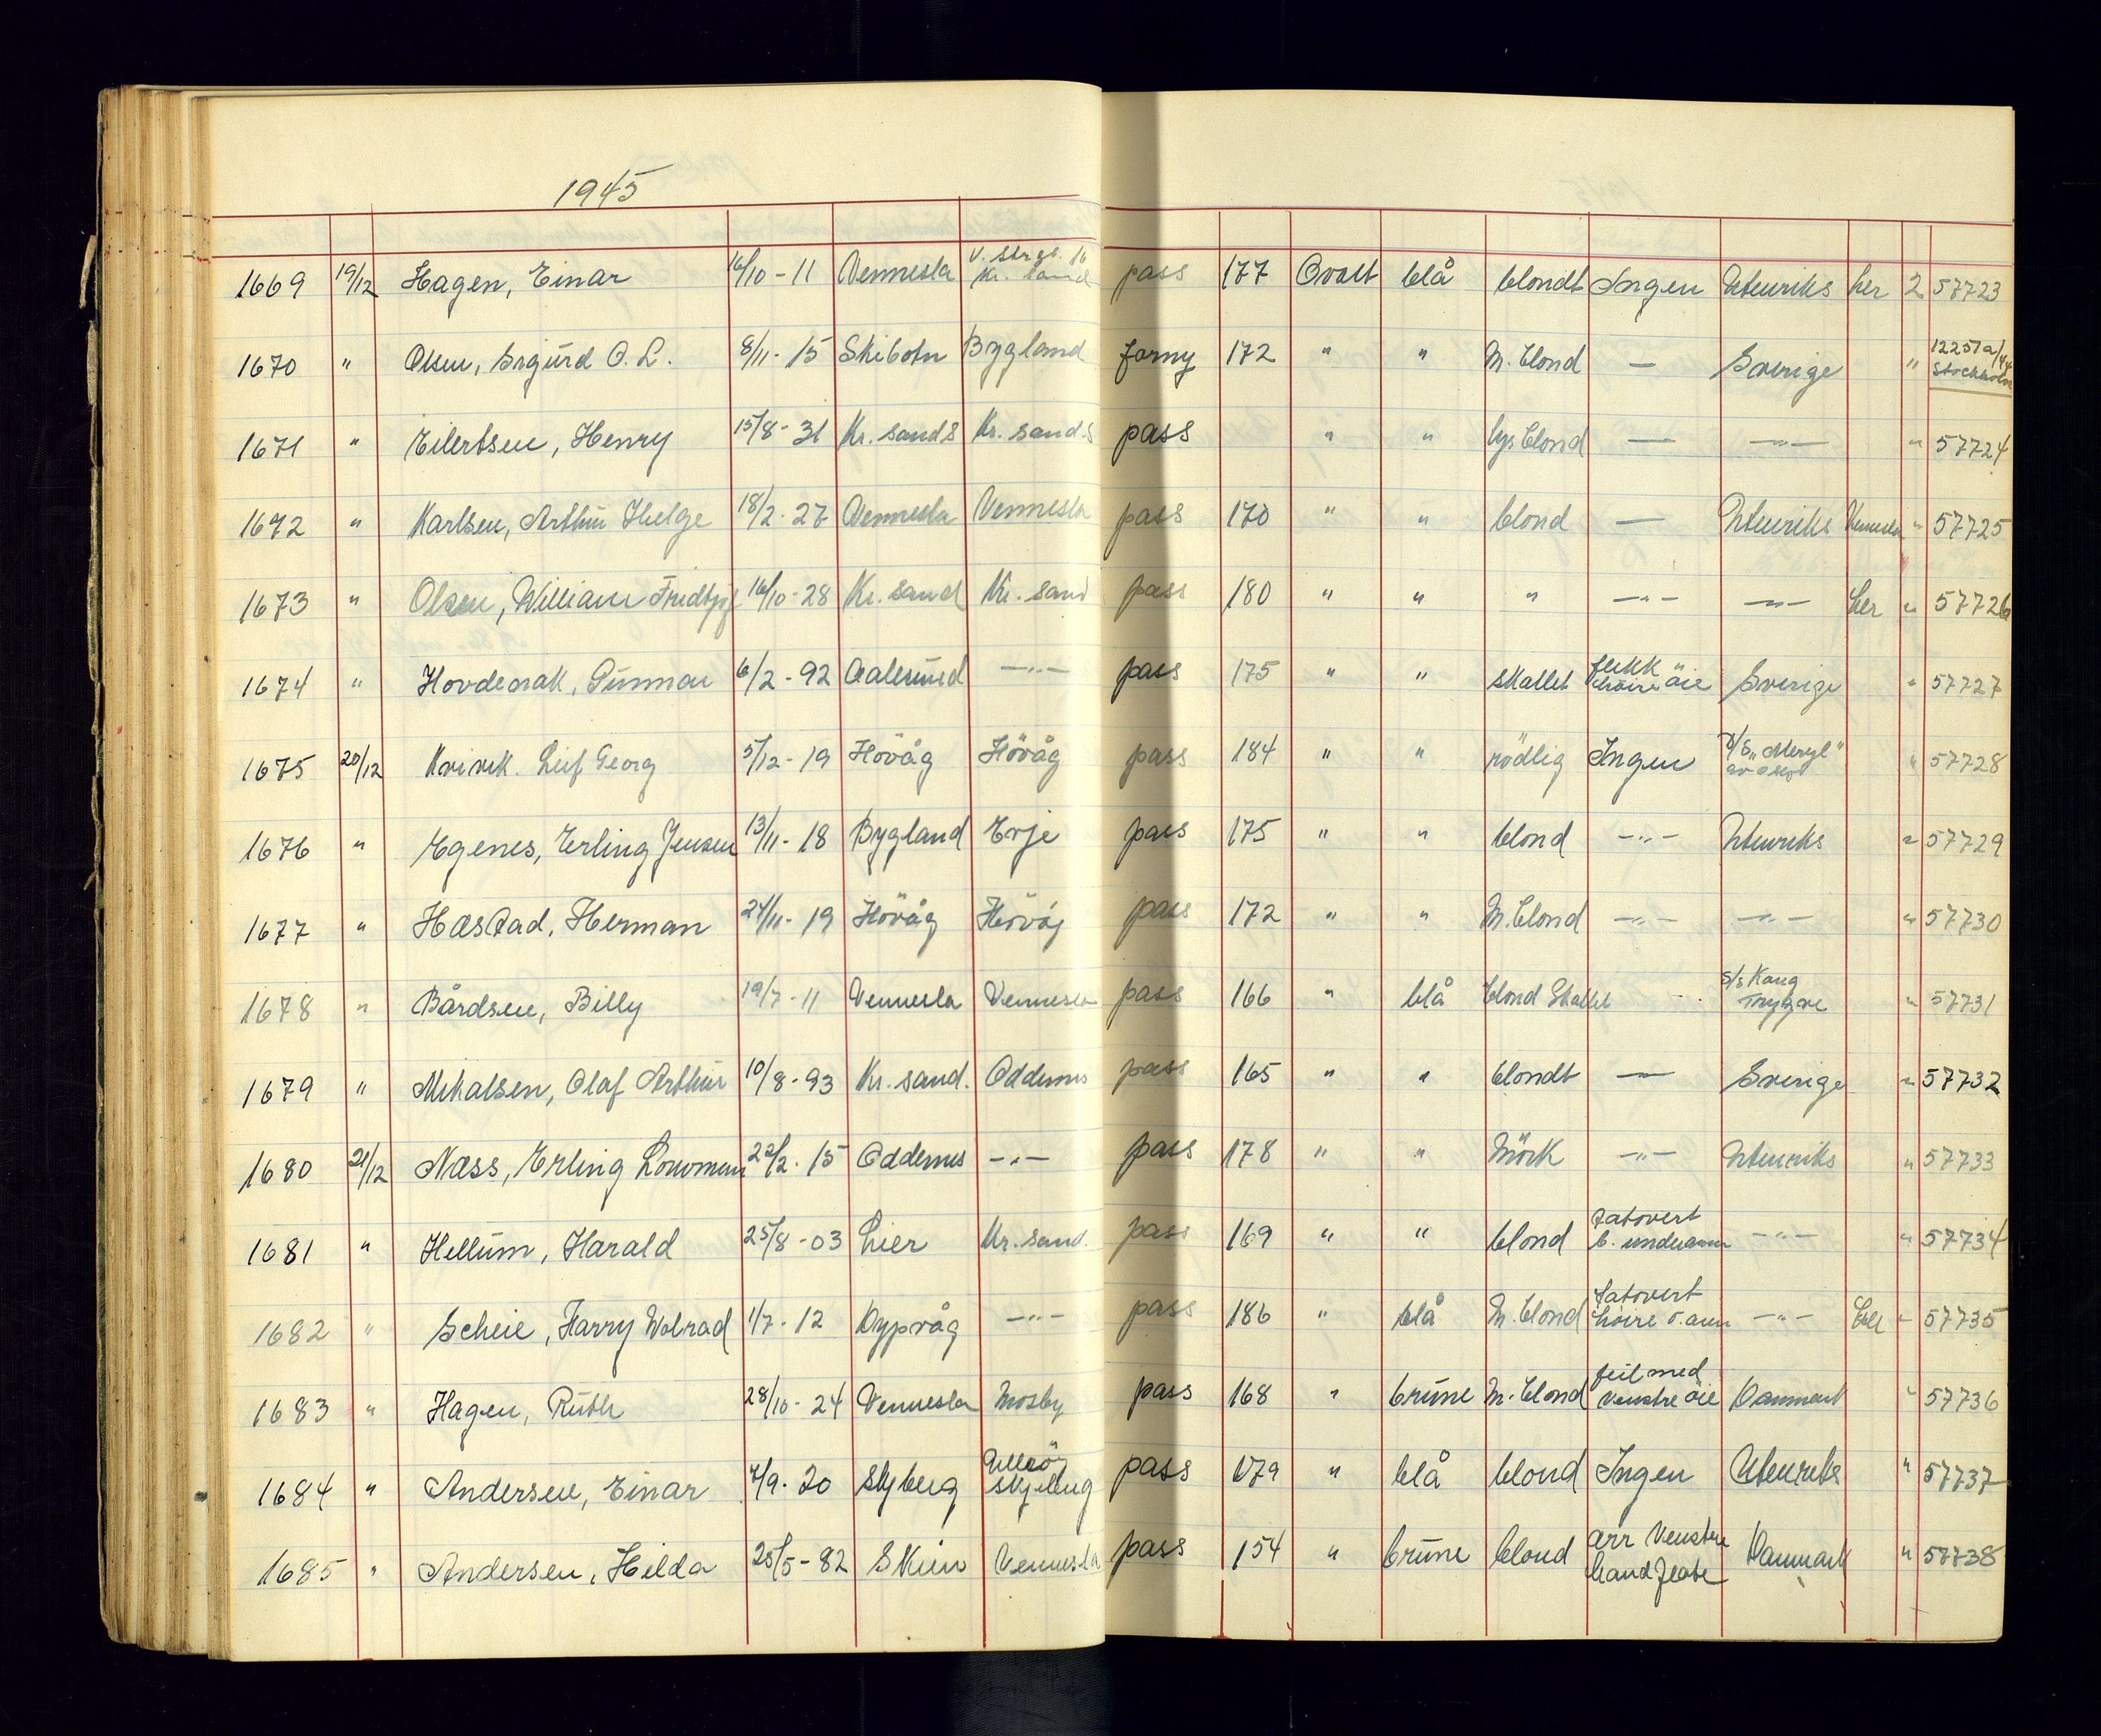 1945
1669 19/12 Hagen, Einar 16/10-11 Vennesla V. Strgt. 16 Kr. sand pass 177 Ovalt blå blondt Ingen Utenriks her 2 57723
1670 " Olsen, Sigurd O. L. 8/11-15 Skibotn Bygland forny 172 " " M. blond — Sverige " 12257a/44 Stockholm
1671 " Eilertsen, Henry 15/8-31 Kr. sand S Kr. sand S pass " " lys blond — —"— " 57724
1672 " Karlsen, Arthur Helge 18/2-27 Vennesla Vennesla pass 170 " " blond — Utenriks Vennesla " 57725
1673 " Olsen, William Fridtjof 16/10-28 Kr. sand Kr. sand pass 180 " " " —"— —"— her " 57726
1674 " Hovdenak, Gunnar 6/2-92 Aalesund —"— pass 175 " " skallet flekk høire öie Sverige " 57727
1675 20/12 Kvivik. Leif Georg 5/12-19 Hövåg Hövåg pass 184 " " rödlig Ingen "Meryl" av Oslo " 57728
1676 " Egenes, Erling Jensen 13/11-18 Bygland Evje pass 175 " " blond —"— Utenriks " 57729
1677 " Hæstad, Herman 24/11-19 Hövåg Hövåg pass 172 " " M. blond —"— —"— " 57730
1678 " Bårdsen, Billy 19/7-11 Vennesla Vennesla pass 166 " blå blond Skallet —"— S/s Kong Trygve " 57731
1679 " Mikalsen, Olaf Arthur 10/8-93 Kr. sand. Oddernes pass 165 " " blondt — Sverige " 57732
1680 21/12 Næss, Erling 22/2-15 Oddernes —"— pass 178 " " Mörk —"— Utenriks " 57733
1681 " Hellum, Harald 25/8-03 Lier Kr. sand. pass 169 " " blond Tatovert b. underarm —"— " 57734
1682 " Scheie, Harry Wolrad 1/7-12 Dypvåg —"— pass 186 " blå M. blond Tatovert höire o. arm —"— " 57735
1683 " Hagen, Ruth 28/10-24 Vennesla Mosby pass 168 " brune M. blond feil med venstre öie Danmark " 57736
1684 " Andersen, Einar 7/9-20 Ulleröy pass 179 " blå blond Ingen Utenriks " 57737
1685 " Andersen, Hilda 25/5-82 Skien Vennesla pass 154 " brune blond arr Venstre handflate Danmark " 57738